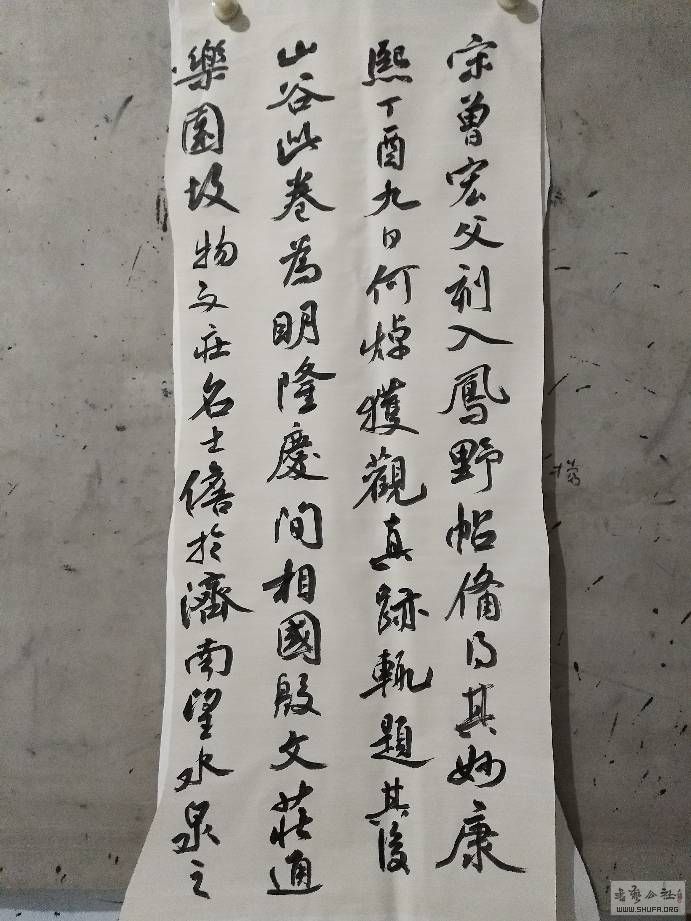 宋曾宏父刻入鳳野帖備得其妙康
熙丁酉九日何焯獲觀真跡輒題其後
山谷此卷為明隆慶間相國殷文莊通
樂園故物文莊名士儋於濟南望水泉之
WWW.SHUFA.ORG